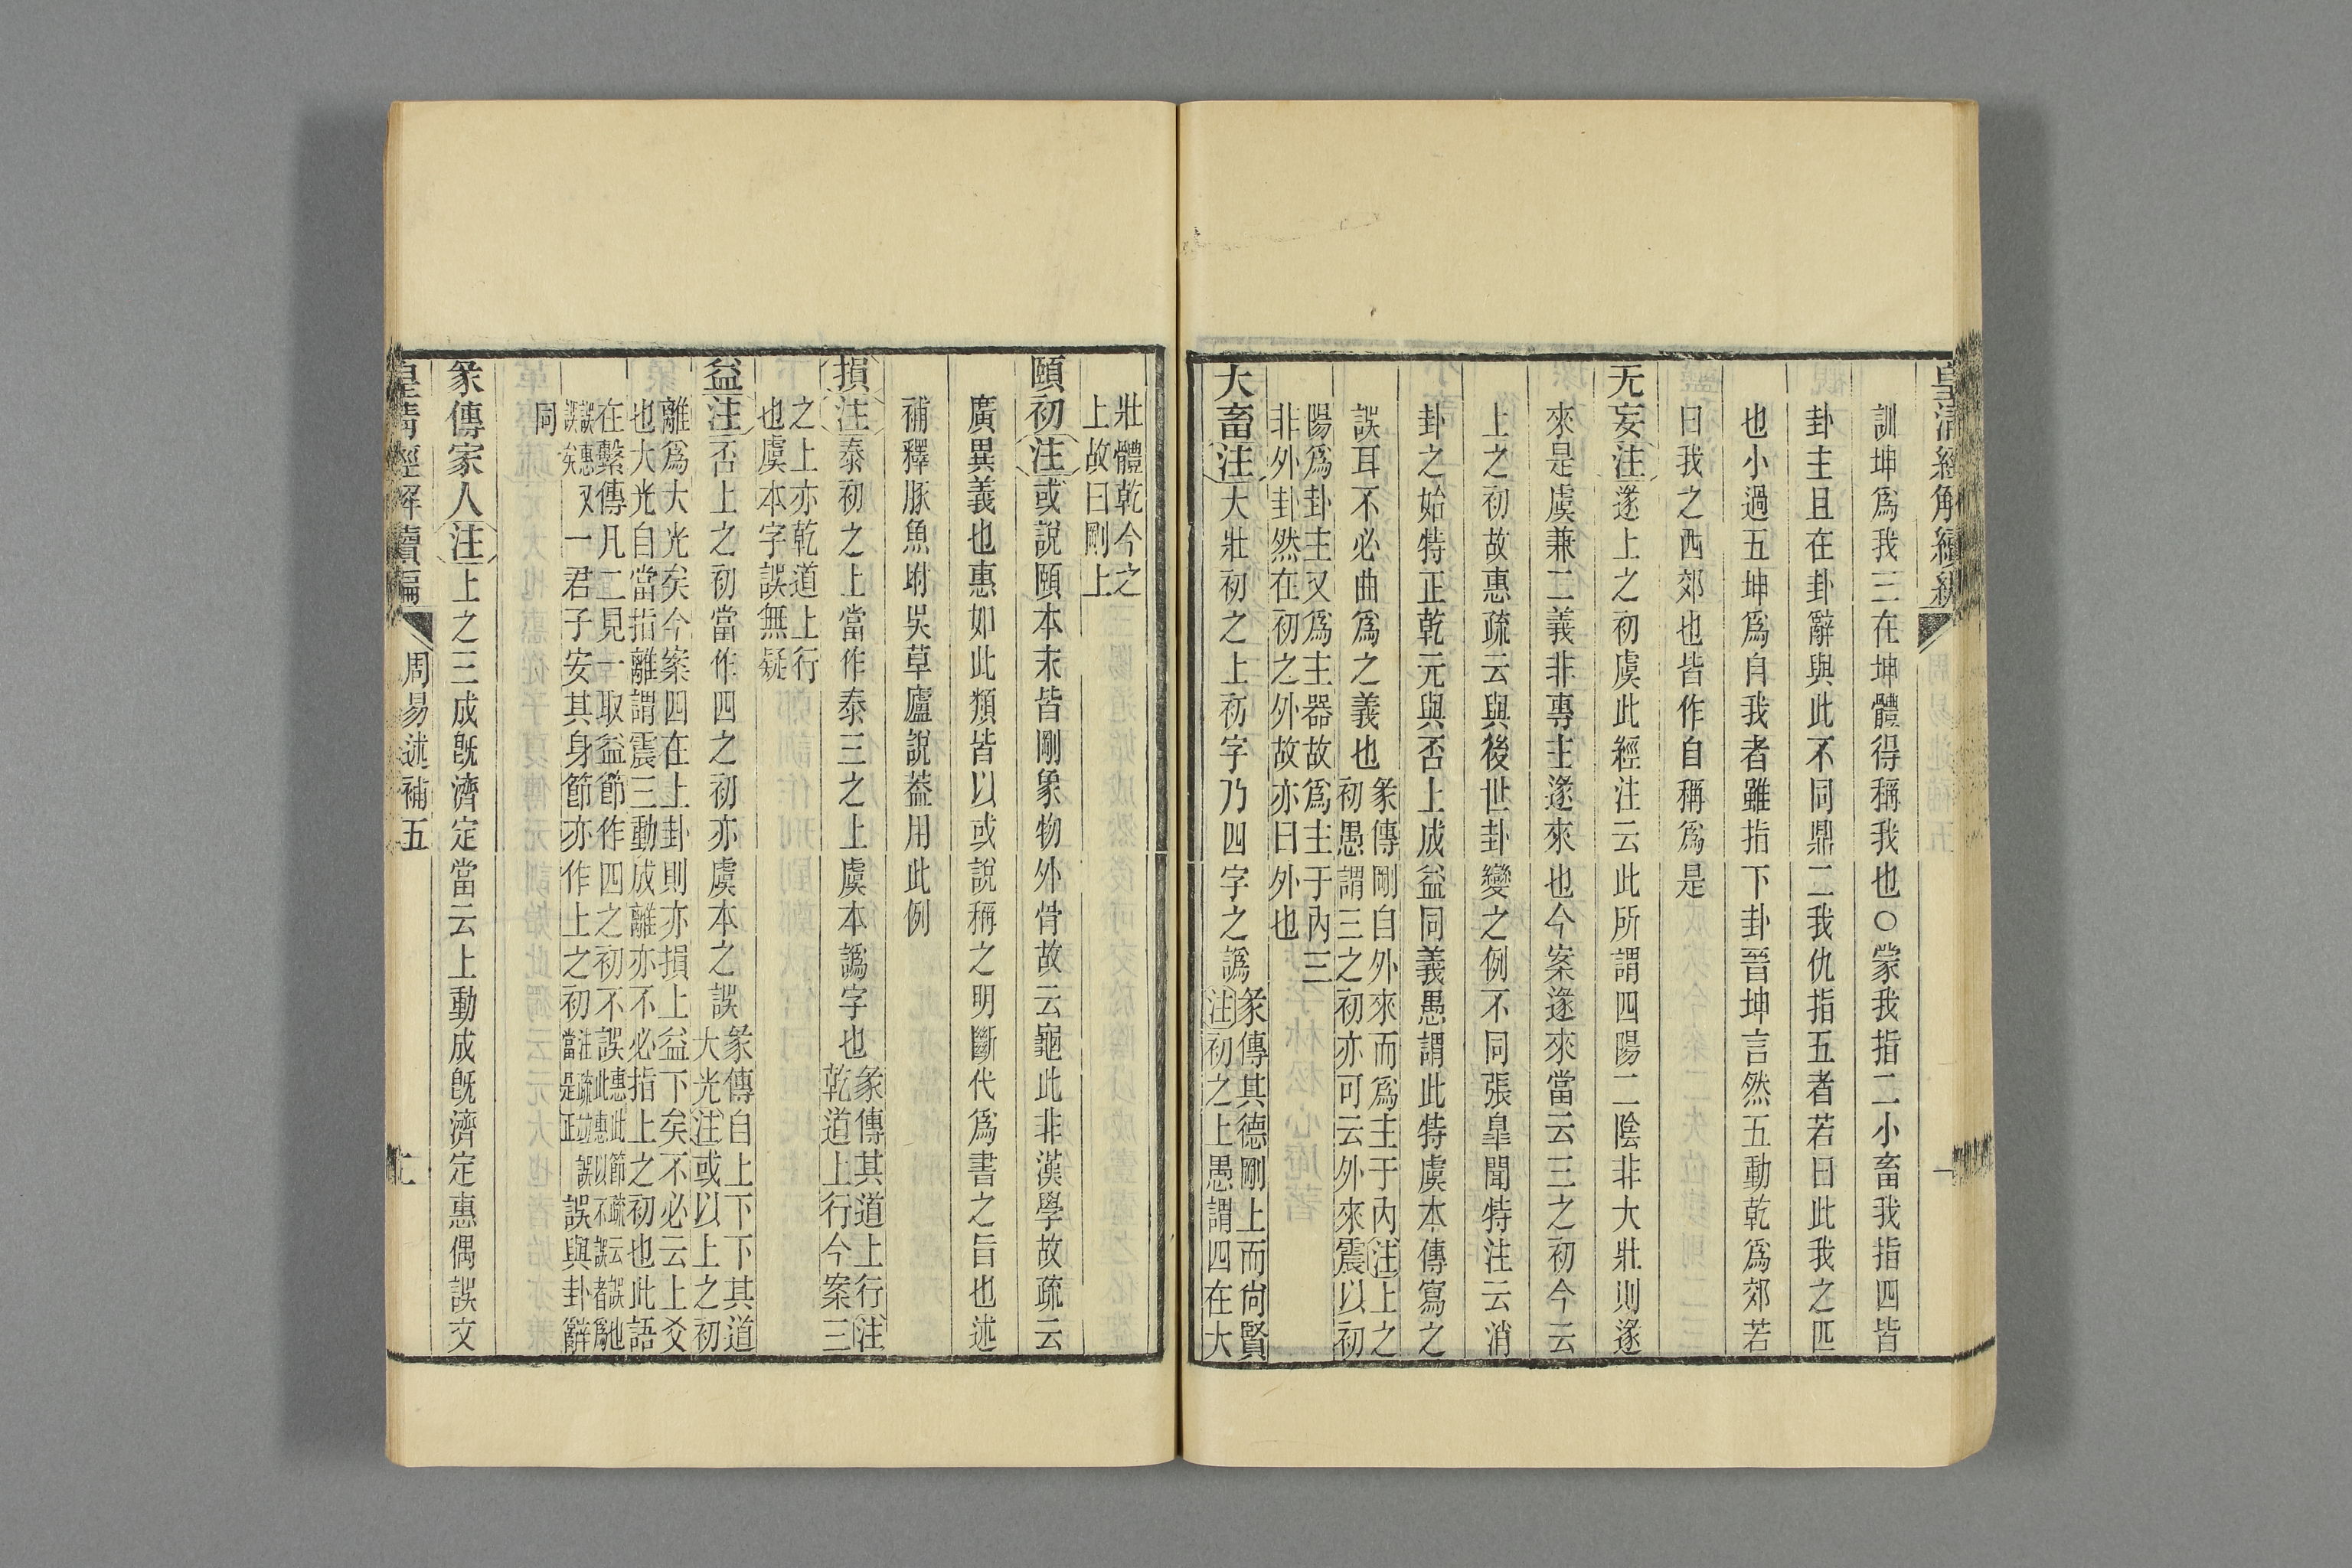 皇清經解續編
訓坤爲我三在坤體得稱我也○蒙我指二小畜我指四皆
卦主且在卦辭與此不同鼎二我仇指五者若曰此我之匹
也小過五坤爲自我者雖指下卦晉坤言然五動乾爲郊若
曰我之西郊也皆作自稱爲是
无妄注遂上之初虞此經注云此所謂四陽二陰非大壯則遂
來是虞兼二義非專主遂來也今案遂來當云三之初今云
上之初故惠疏云與後世卦變之例不同張臯聞特注云消
卦之始特正乾元與否上成益同義愚謂此特虞本傳寫之
誤耳不必曲爲之義也彖傳剛自外來而爲主于內注上之
初愚謂三之初亦可云外來震以初
陽爲卦主又爲主器故爲主于內三
非外卦然在初之外故亦曰外也
大畜注大壯初之上初字乃四字之譌彖傳其德剛上而尙賢
注初之上愚謂四在大
壯體乾今之
上故曰剛上
頤初注或說頤本末皆剛象物外骨故云龜此非漢學故疏云
廣異義也惠如此類皆以或說稱之明斷代爲書之旨也述
補釋豚魚坿吳草廬說葢用此例
損注泰初之上當作泰三之上虞本譌字也彖傳其道上行注
乾道上行今案三
之上亦乾道上行
也虞本字誤無疑
益注否上之初當作四之初亦虞本之誤彖傳自上下下其道
大光注或以上之初
離爲大光矣今案四在上卦則亦損上益下矣不必云上爻
也大光自當指離謂震三動成離亦不必指上之初也此語
在繫傳凡二見一取益節作四之初不誤惠此節疏云誤也
此惠以不誤者爲
誤惠
誤矣又一君子安其身節亦作上之初注疏竝誤
當是正誤與卦辭
同
彖傳家人注上之三成旣濟定當云上動成旣濟定惠偶誤文
皇清經解續編
周易述補五